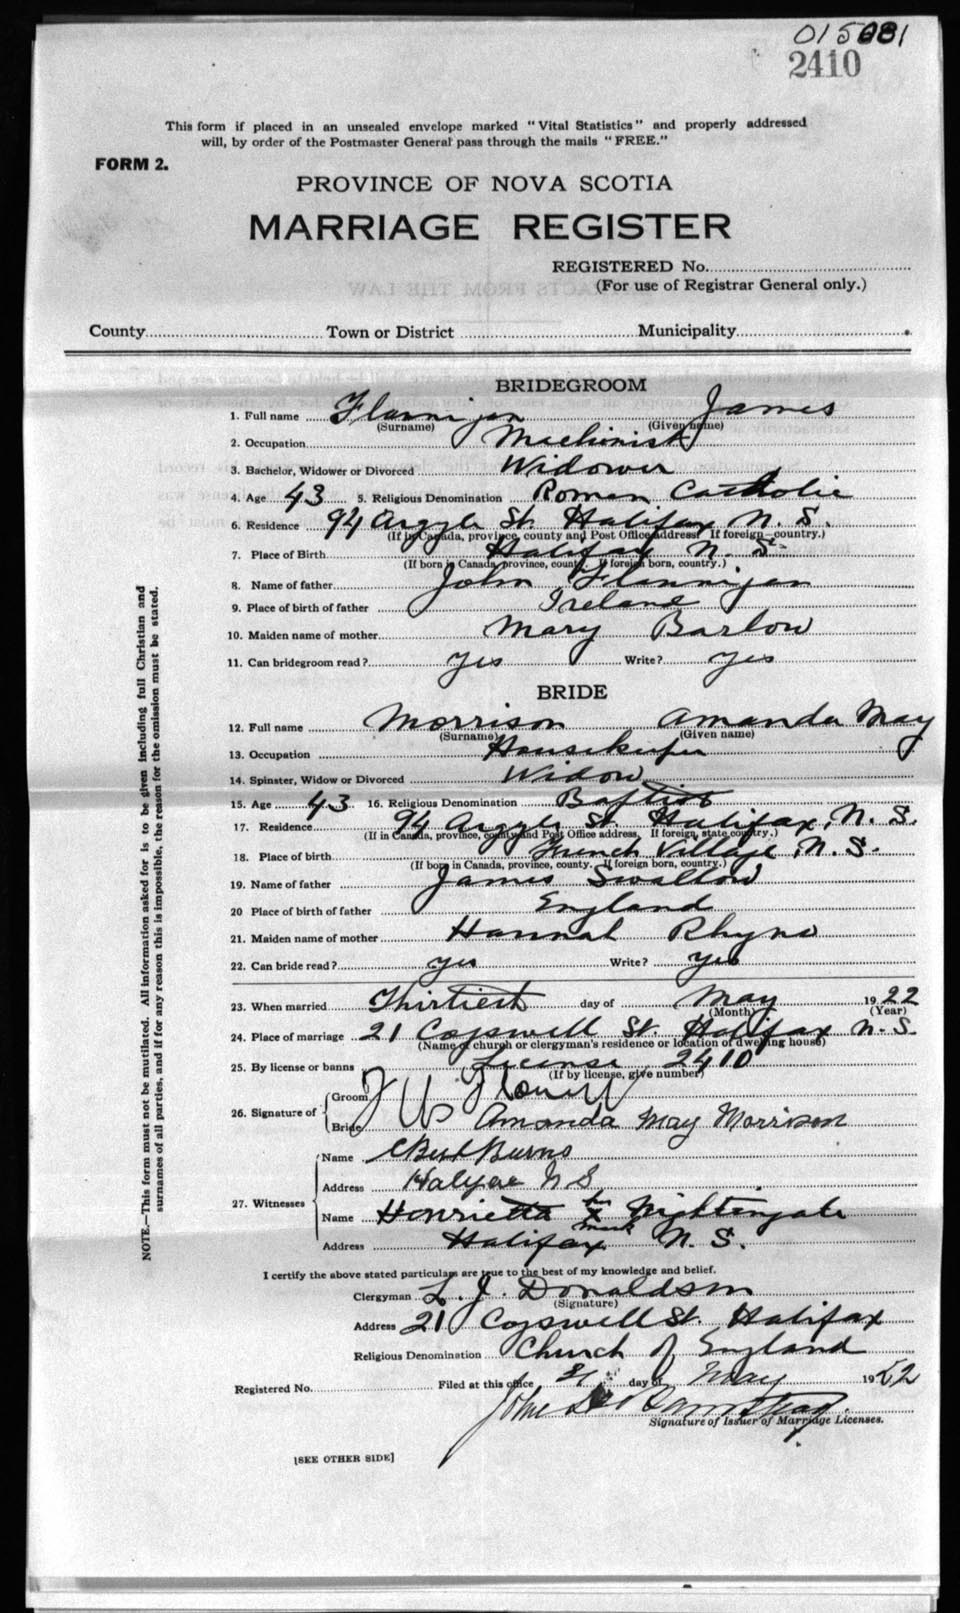 2410
This form if placed in an unsealed envelope marked "Vital Statistics" and properly addressed
will, by order of the Postmaster General pass through the mails "FREE."
FORM 2.
PROVINCE OF NOVA SCOTIA
MARRIAGE REGISTER
REGISTERED No.
(For use of Registrar General only.)
County Town or District Municipality
BRIDEGROOM
1. Full name Flannigan James
(Surname) (Given name)
2. Occupation Machinist
3. Bachelor, Widower or Divorced Widower
4. Age 43 5. Religious Denomination Roman Catholic
6. Residence 94 Argyle St. Halifax N. S.
(If in Canada, province, county and Post Office address. If foreign—country.)
7. Place of Birth Halifax N. S.
(If born in Canada, province, county. If foreign born, country.)
8. Name of father John Flannigan
9. Place of birth of father Ireland
10. Maiden name of mother Mary Barlow
11. Can bridegroom read? yes Write? yes
BRIDE
12. Full name Morrison Amanda May
(Surname) (Given name)
13. Occupation Housekeeper
14. Spinster, Widow or Divorced Widow
15. Age 43 16. Religious Denomination Baptist
17. Residence 94 Argyle St. Halifax, N. S.
(If in Canada, province, county and Post Office address. If foreign, state country.)
18. Place of birth French Village, N. S.
(If born in Canada, province, county. If foreign born, country.)
19. Name of father James Swallow
20 Place of birth of father England
21. Maiden name of mother Hannah Rhyno
22. Can bride read? yes Write? yes
23. When married Thirtiest day of May 1922
(Month) (Year)
24. Place of marriage 21 Cogswell St. Halifax N. S.
(Name of church or clergyman's residence or location of dwelling house)
25. By license or banns License 2410
(If by license, give number)
26. Signature of Groom
Bride Amanda May Morrison
27. Witnesses
Name Bert Burns
Address Halifax N S
Name Henrietta her X mark Nightingale
Address Halifax N. S.
I certify the above stated particulars are true to the best of my knowledge and belief.
Clergyman L. J. Donaldson
(Signature)
Address 21 Cogswell St. Halifax
Religious Denomination Church of England
Registered No. Filed at this office 31 day of May 1922
John
Signature of Issuer of Marriage Licenses.
[SEE OTHER SIDE]
NOTE.—This form must not be mutilated. All information asked for is to be given including full Christian and
surnames of all parties, and if for any reason this is impossible, the reason for the omission must be stated.